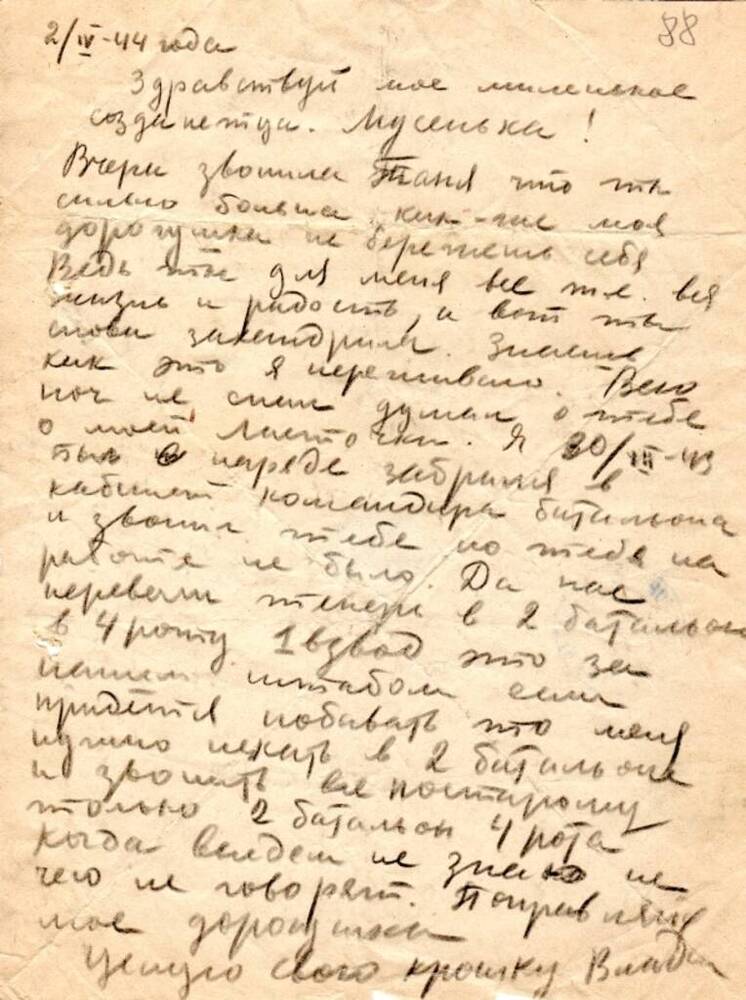 88
2/IV-44 года
Здравствуй мое миленькое
созданетце. Мусенька!
Вчера звонила Таня что ты
сильно больна, как-же моя
дорогушка не бережешь себя
Ведь ты для меня все т.е. вся
жизнь и радость, а вот ты
снова захандрила. Знаешь
как это я переживаю. Всю
ноч не спал думал о тебе
о моей ласточки. Я 30/III-43
был в наряде забрался в
кабинет командира батальона
и звонил тебе но тебя на
работе не было. Да нас
перевели теперь в 2 батальон
в 4 роту 1 взвод это за
нашим штабом если
придется побывать то меня
нужно искать в 2 батальоне
и звонить все по старому
только 2 батальон 4 рота
Когда выедем не знаю не
чего не говорят. Поправляйся
мое дорогушка
Целую свою крошку Влад